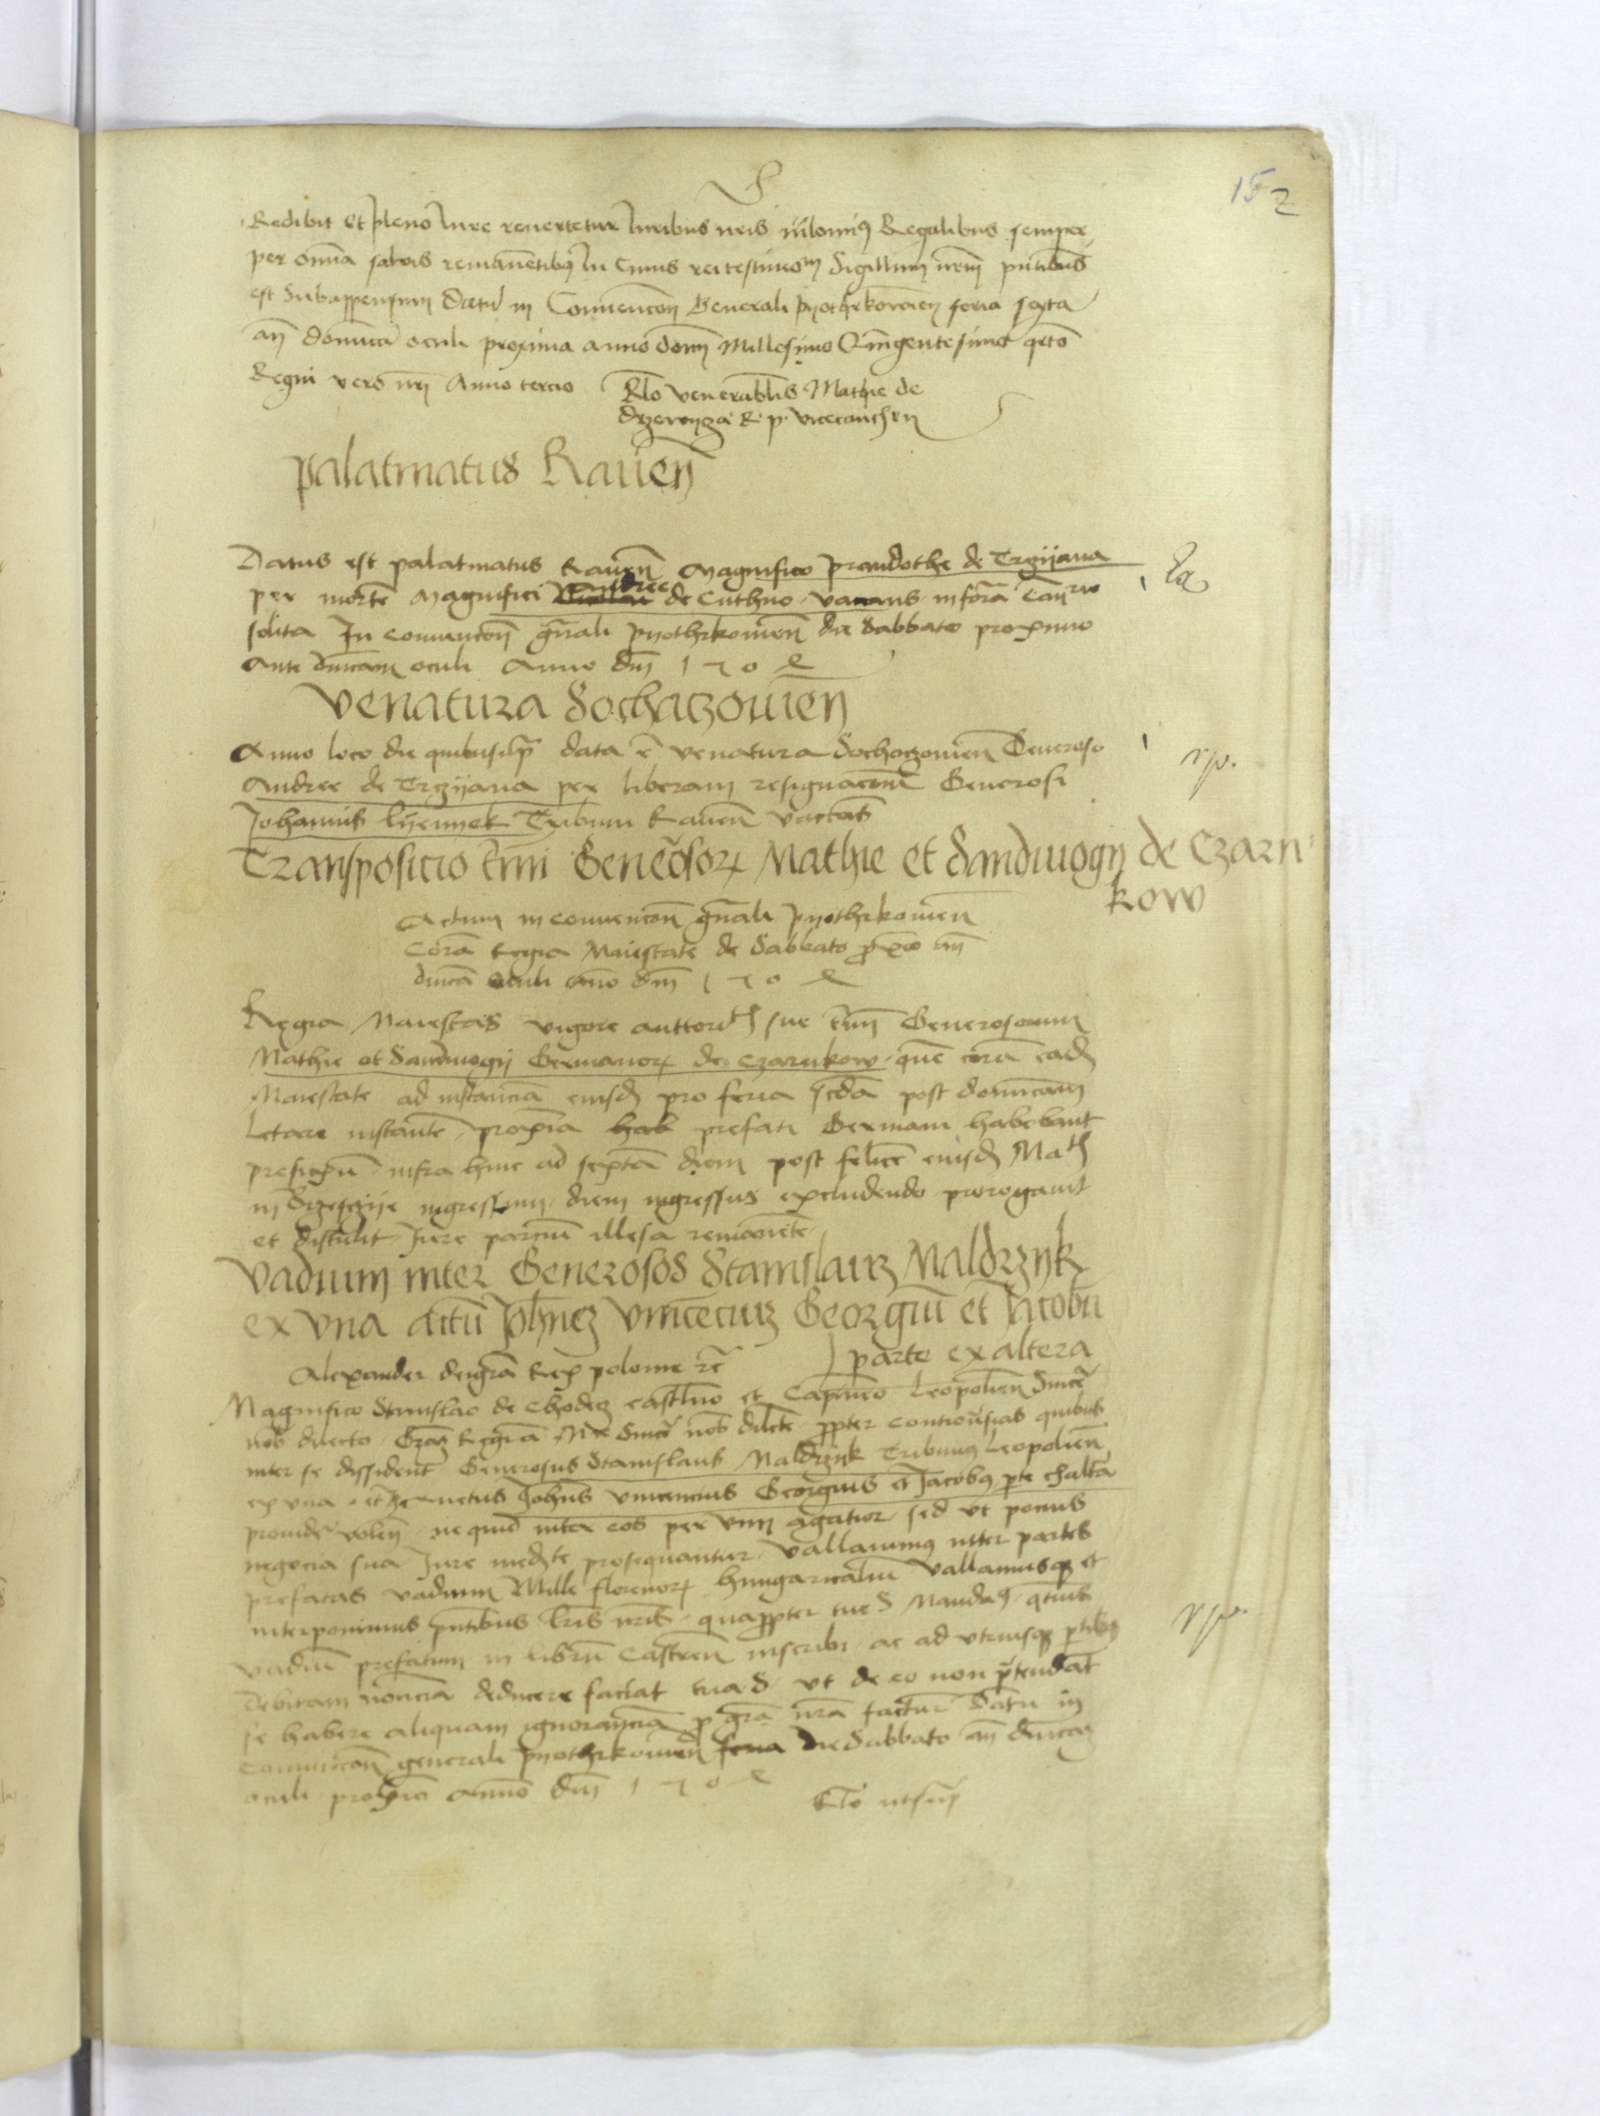 152
Redibit Et pleno Iure revertetur Iuribus nris Regalibus semper
per omnia salvis remanentibus In Cuius rei testimom Sigillum nrm pntibus
est Subappensum Datu in Convencon Generali Pyothrkovien feria sexta
an domica oculi proxima anno domi Millesimo Quingentesimo qrto
Regni vero nri Anno tercio Rlo venerablis Mathie de
Drzewycza R. p. vicecancher
Palatinatus Raven
Datus est palatinatus Raven Magnifico Prandothe de Trzijana
per morte Magnifici Andree de Cuthno vacans in fora Canrie
solita In convencon gnali Pyothrkovien die Sabbato proximo
Ante dnicam oculi Anno dni 1504
Venatura Sochaczovien
Anno loco die quibus supra data e venatura Sochaczovien Generoso
Andree de Trzijana per liberam resignacione Generosi
Johannis lyennek Tribuni Raven vactas
Transposicio tmi Generosor Mathie et Sandivogij de Czarn
kow
Actum in convencon gnali Pyothrkovien
Cora Regia Maiestate de Sabbato proxo an
dnica oculi ano dni 1504
Regia Maiestas vigore auttorith sue tmi Generosorum
Mathie et Sandivogij Germanor de Czarnkow que cora ead
Maiestate ad instancia eiusd pro feria scda post dominicam
Letare instante proxia hab prefati Germani habebant
prefixu infra hinc ad sexta diem post felice eiusd Math
in Brzesczije ingressum diem ingressus excludendo prorogavit
et distulit Iure parciu illesa remanete
Vadium inter Generosos Stanislau Maldrzyk
ex una actu Johnez Vincenciu Georgiu et Jacobu
parte ex altera
Alexander dei gra Rex polonie rc
Magnifico Stanislao de Chodecz castllno et Capitaneo Leopolien Sincer
nob dilecto Gram Regia Mce Sincer nob dilcte propter controversias quibus
inter se dissident Generosus Stanislaus Maldrzyk Tribunus Leopolien
ex una et Johnes Vincencius Georgius et Jacobus pte exaltra
provider volen ne quid inter eos per vim agatur sed ut pocius
negocia sua Iure medte prosequantur vallavimus inter partes
prefatas vadium Mille florenor hungaricaliu vallamusq et
interponimus pntibus lris nris quapropter tue S Mandams qtinus
vadiu prefatum in libru Castren inscribi ac ad utriusq ptibus
debitam noticia deducere faciat tua S ut de eo non ptendat
se habere aliquam ignorancia p gra nra factur Datu in
Convencon generali Pyothrkovien feria die Sabbato an dnicam
oculi proxia anno dni 1504
Rlo ut supr